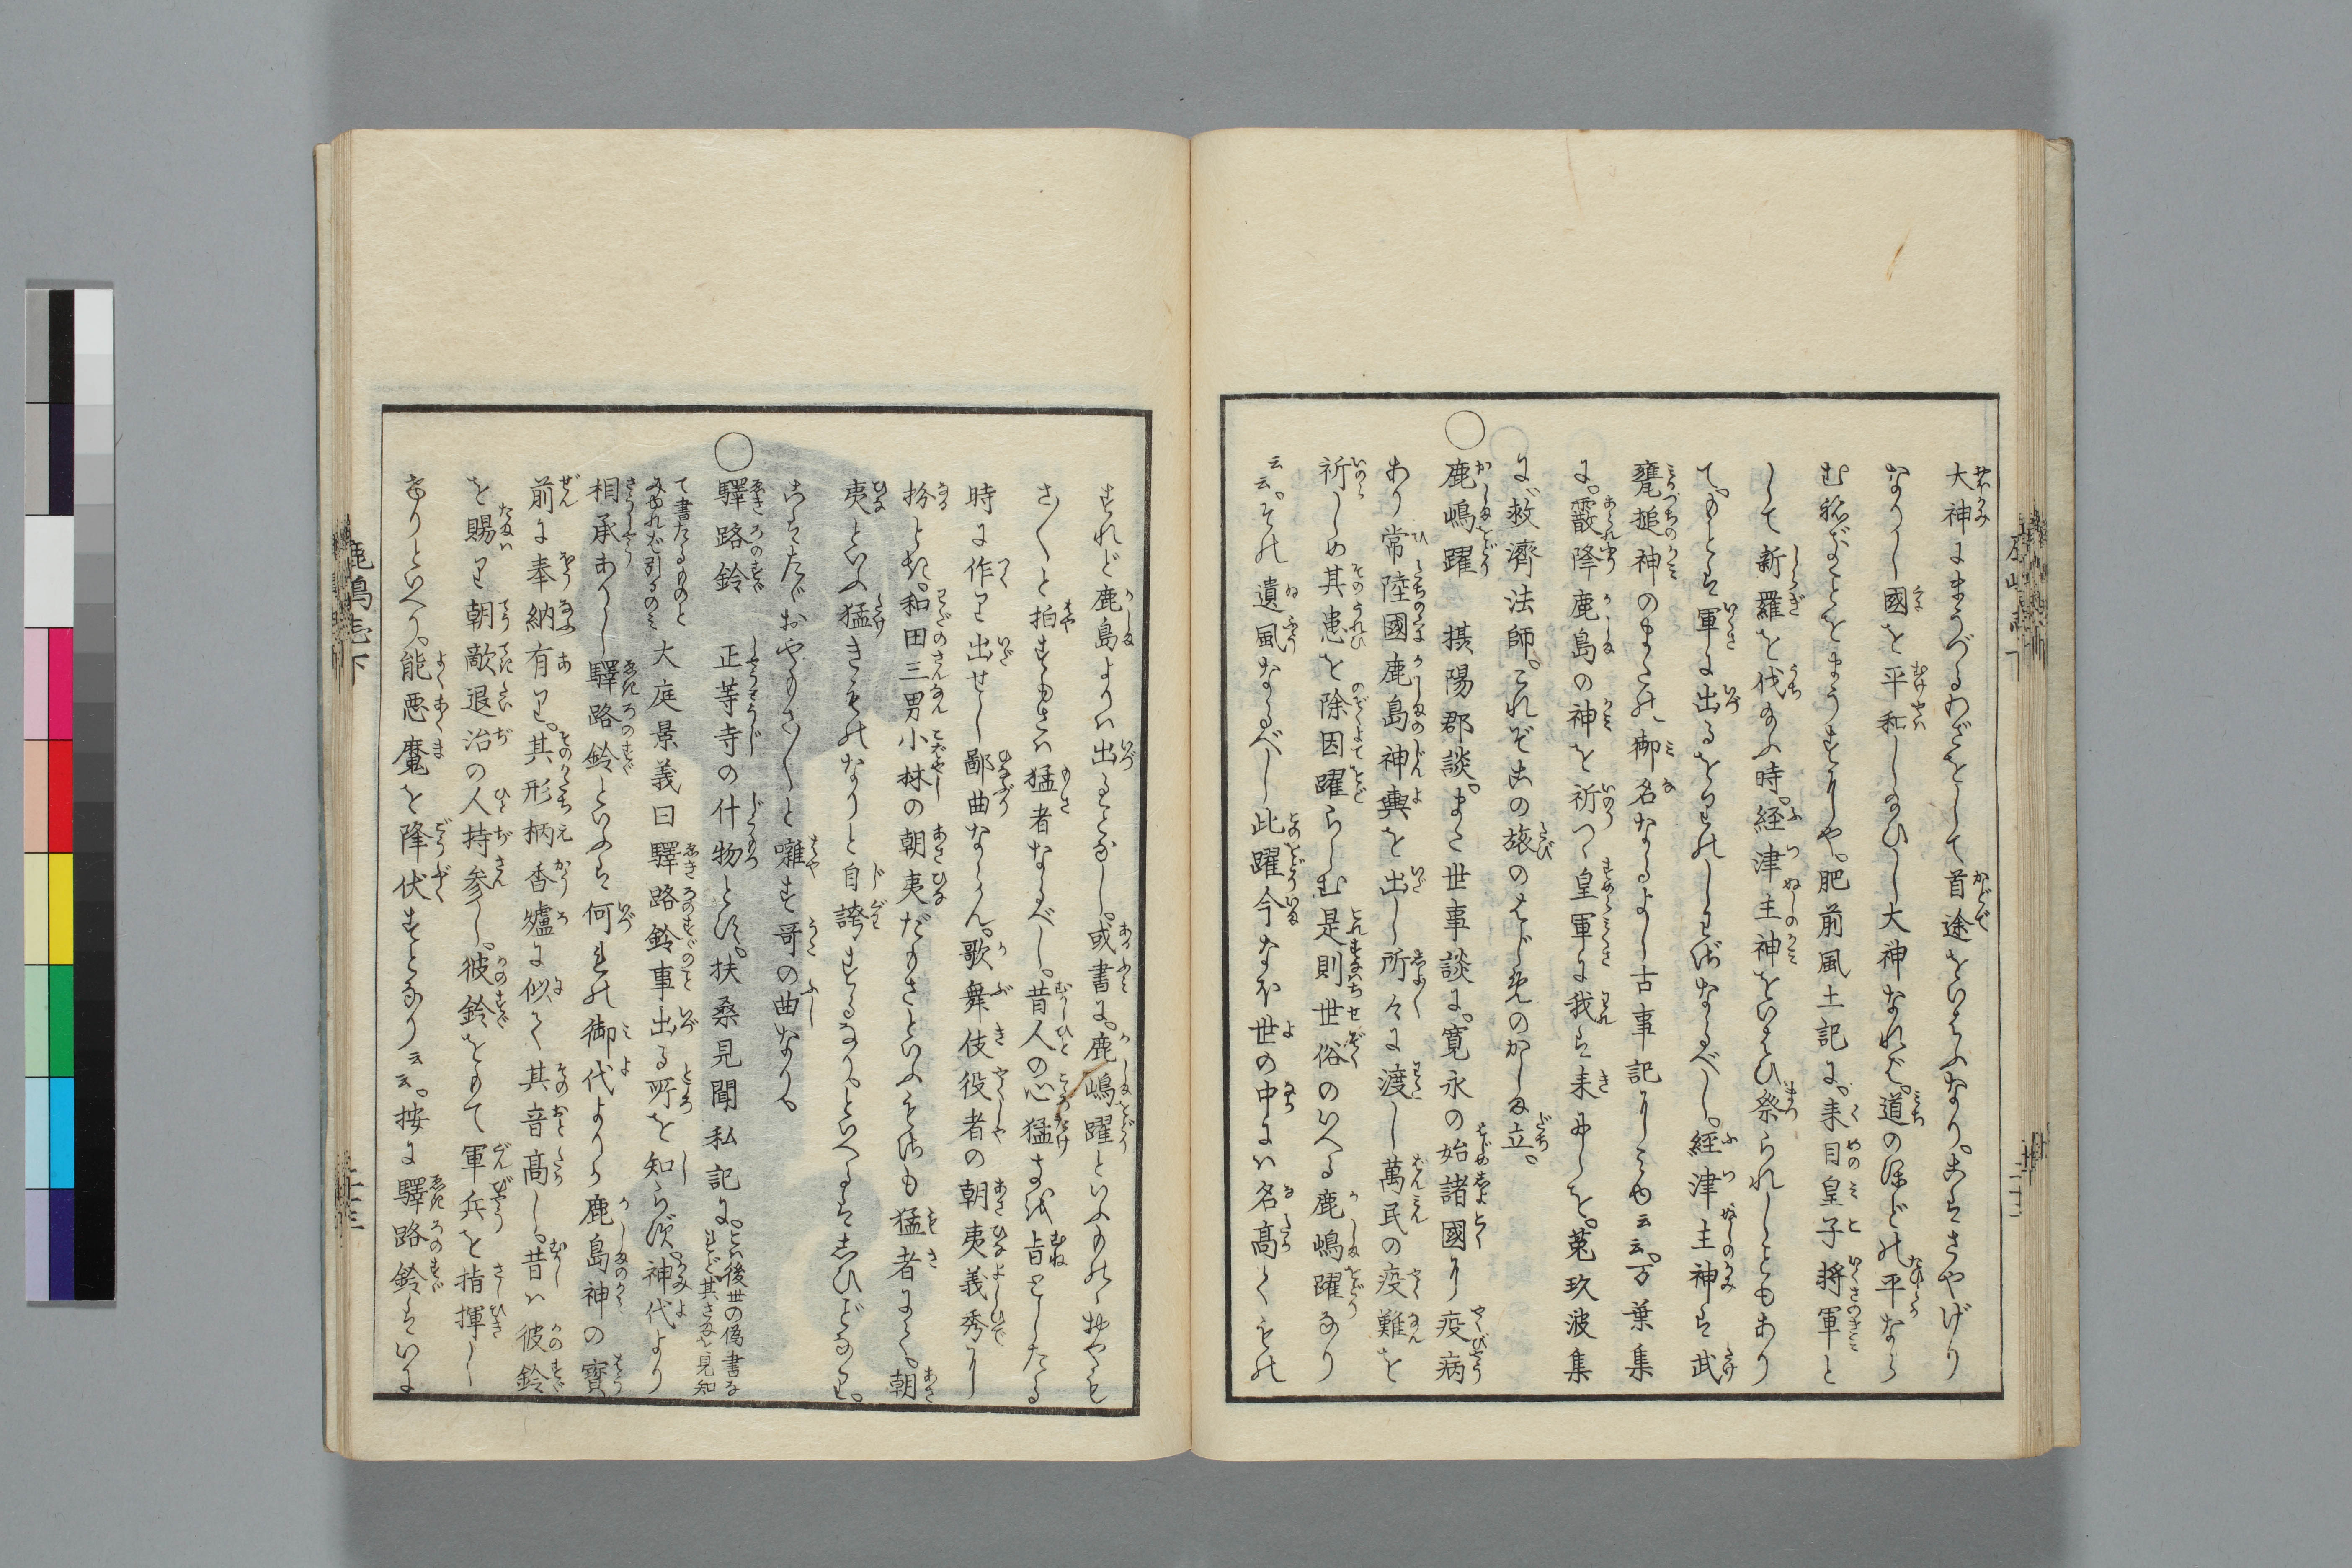 大神にまうべるわざをして首途をいはふなり。こはさやげり
なりし國を平和しゝ給ひし大神なれば。道のほどの平なら
む祝ごとをまうすにや。肥前風土記に。来目皇子将軍と
して新羅を伐給ふ時。経津主神をいはひ祭られしこともあり
て。もとは軍に出るをりのしわざなるべし。経津主神は武
甕槌神のまたの御名なるよし古事記に見ゆ云云。万葉集
に。霰降鹿島の神を祈つゝ皇軍に我は来にしを。菟玖波集
に救濟法師。これぞこの旅のはじめのかしま立。
○鹿嶋躍 摂陽郡談。また世事談に。寛永の始諸國に疫病
あり常陸國鹿島神輿を出し所々に渡し萬民の疫難を
祈しめ其患を除因躍らしむ是則世俗のいへる鹿嶋躍なり
云云。その遺風なるべし此躍今なほ世の中には名高くその
すれど鹿島よりは出ることなし。或書に。鹿嶋躍といふものゝおやも
さくと拍すもさは猛者なるべし。昔人の心猛きを旨としたる
時に作り出せし鄙曲ならん。歌舞伎役者の朝夷義秀に
扮とき。和田三男小林の朝夷だもさといふそれも猛者にて。朝
夷といふ猛きものなりと自誇するなり。といへるはしひごとなり。
こはたゞおやもさくと囃す哥の曲なり。
○驛路鈴 正等寺の什物とす。扶桑見聞私記に。こは後世の偽書な
れど其さまや見知
て書たるものと
みゆれば引るのミ
大庭景義曰驛路鈴事出る所を知らず。神代より
相承ありし驛路鈴といふは何れの御代よりか鹿島神の寳
前に奉納有り。其形柄香爐に似て其音高し。昔は彼鈴
を賜り朝敵退治の人持参し。彼鈴をもて軍兵を指揮し
けりといへり。能悪魔を降伏すとなり云云。按に驛路鈴はいに
鹿嶋志下